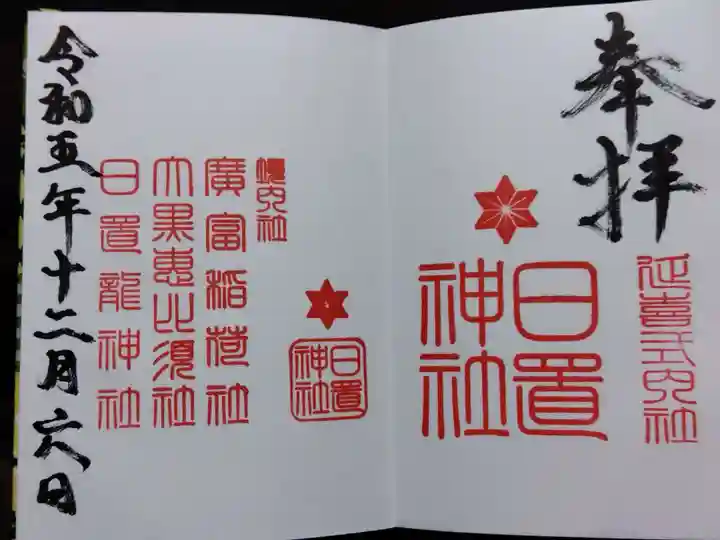 奉拝
延喜式内社
日置
神社
境内社
廣富稲荷社
大黒恵比須社
日置龍神社
日置
神社
令和五年十二月六日